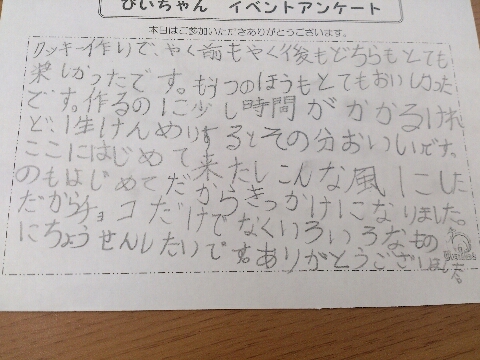 ぴぃちゃん イベントアンケート
本日はご参加いただきありがとうございます。
クッキー作りで、やく前もやく後もどちらもとても
楽しかったです。もう1つのほうもとてもおいしかった
です。作るのに少し時間がかかるけれ
ど、1生けんめいするとその分おいしいです。
ここにはじめて来たしこんな風にした
のもはじめてだからきっかけになりました。
だからチョコだけでなくいろいろなもの
にちょうせんしたいです。ありがとうござい
ました。